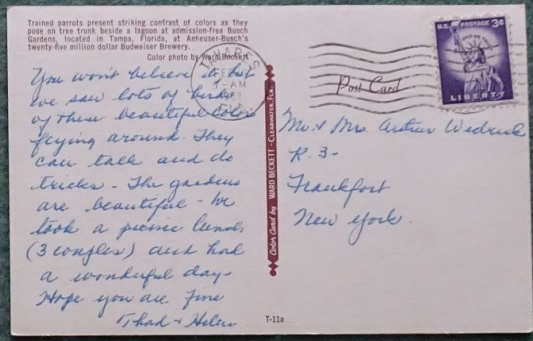 Trained parrots present striking contrast of colors as they
pose on tree trunk beside a lagoon at admission-free Busch
Gardens, located in Tampa, Florida, at Anheuser-Busch's
twenty-five million dollar Budweiser Brewery.
Color photo by Ward Beckett
You won't believe it, but
we saw lots of birds
of these beautiful colors
flying around. They
can talk and do
tricks - The gardens
are beautiful - We
took a picnic lunch
(3 couples) and had
a wonderful day -
Hope you are fine
Thad + Helen
TAVARES
AM
FLA.
U.S. POSTAGE 3¢
LIBERTY
Post Card
Mr. & Mrs. Arthur Wedrick
R. 3 -
Frankfort
New York.
Color Card by WARD BECKETT - CLEARWATER, FLA.
T-11a